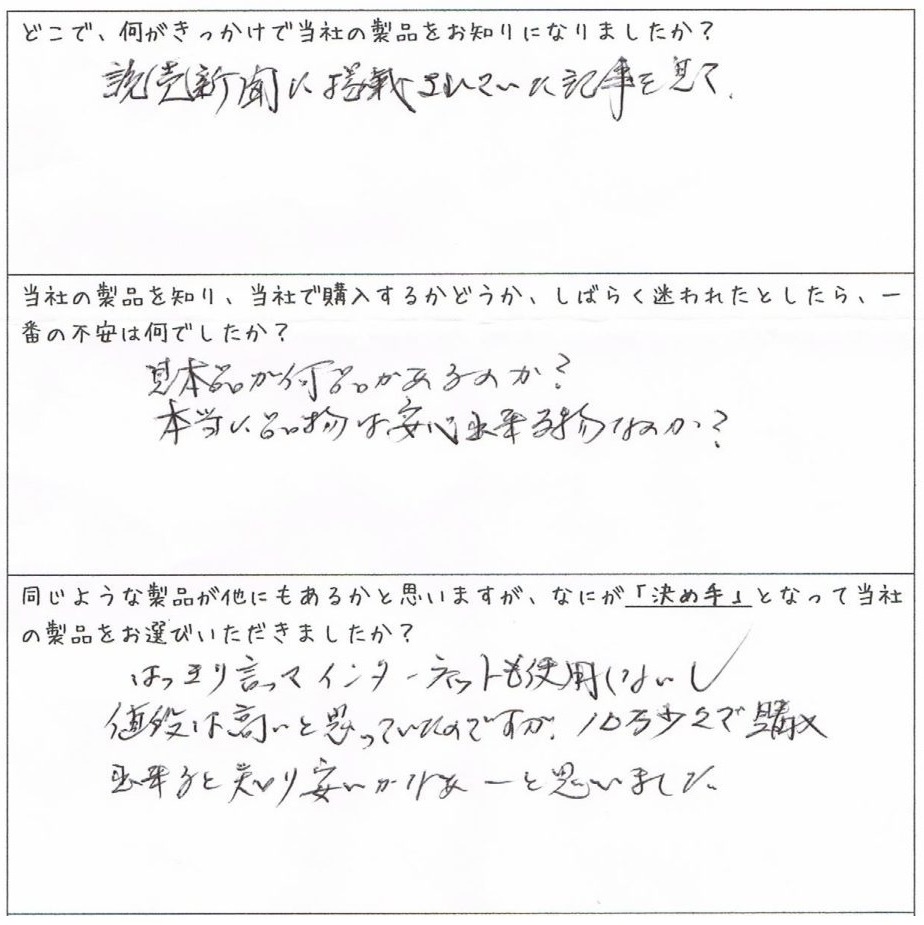 どこで、何がきっかけで当社の製品をお知りになりましたか?
読売新聞に搭載されていた記事を見て.
当社の製品を知り、当社で購入するかどうか、しばらく迷われたとしたら、一
番の不安は何でしたか?
見本品が何品があるのか?
本当に品物は安心出来る物なのか?
同じような製品が他にもあるかと思いますが、なにが「決め手」となって当社
の製品をお選びいただきましたか?
はっきり言ってインターネットも使用しないし
値段は高いと思っていたのですが、10万少々で購入
出来ると知り安いかなあーと思いました。